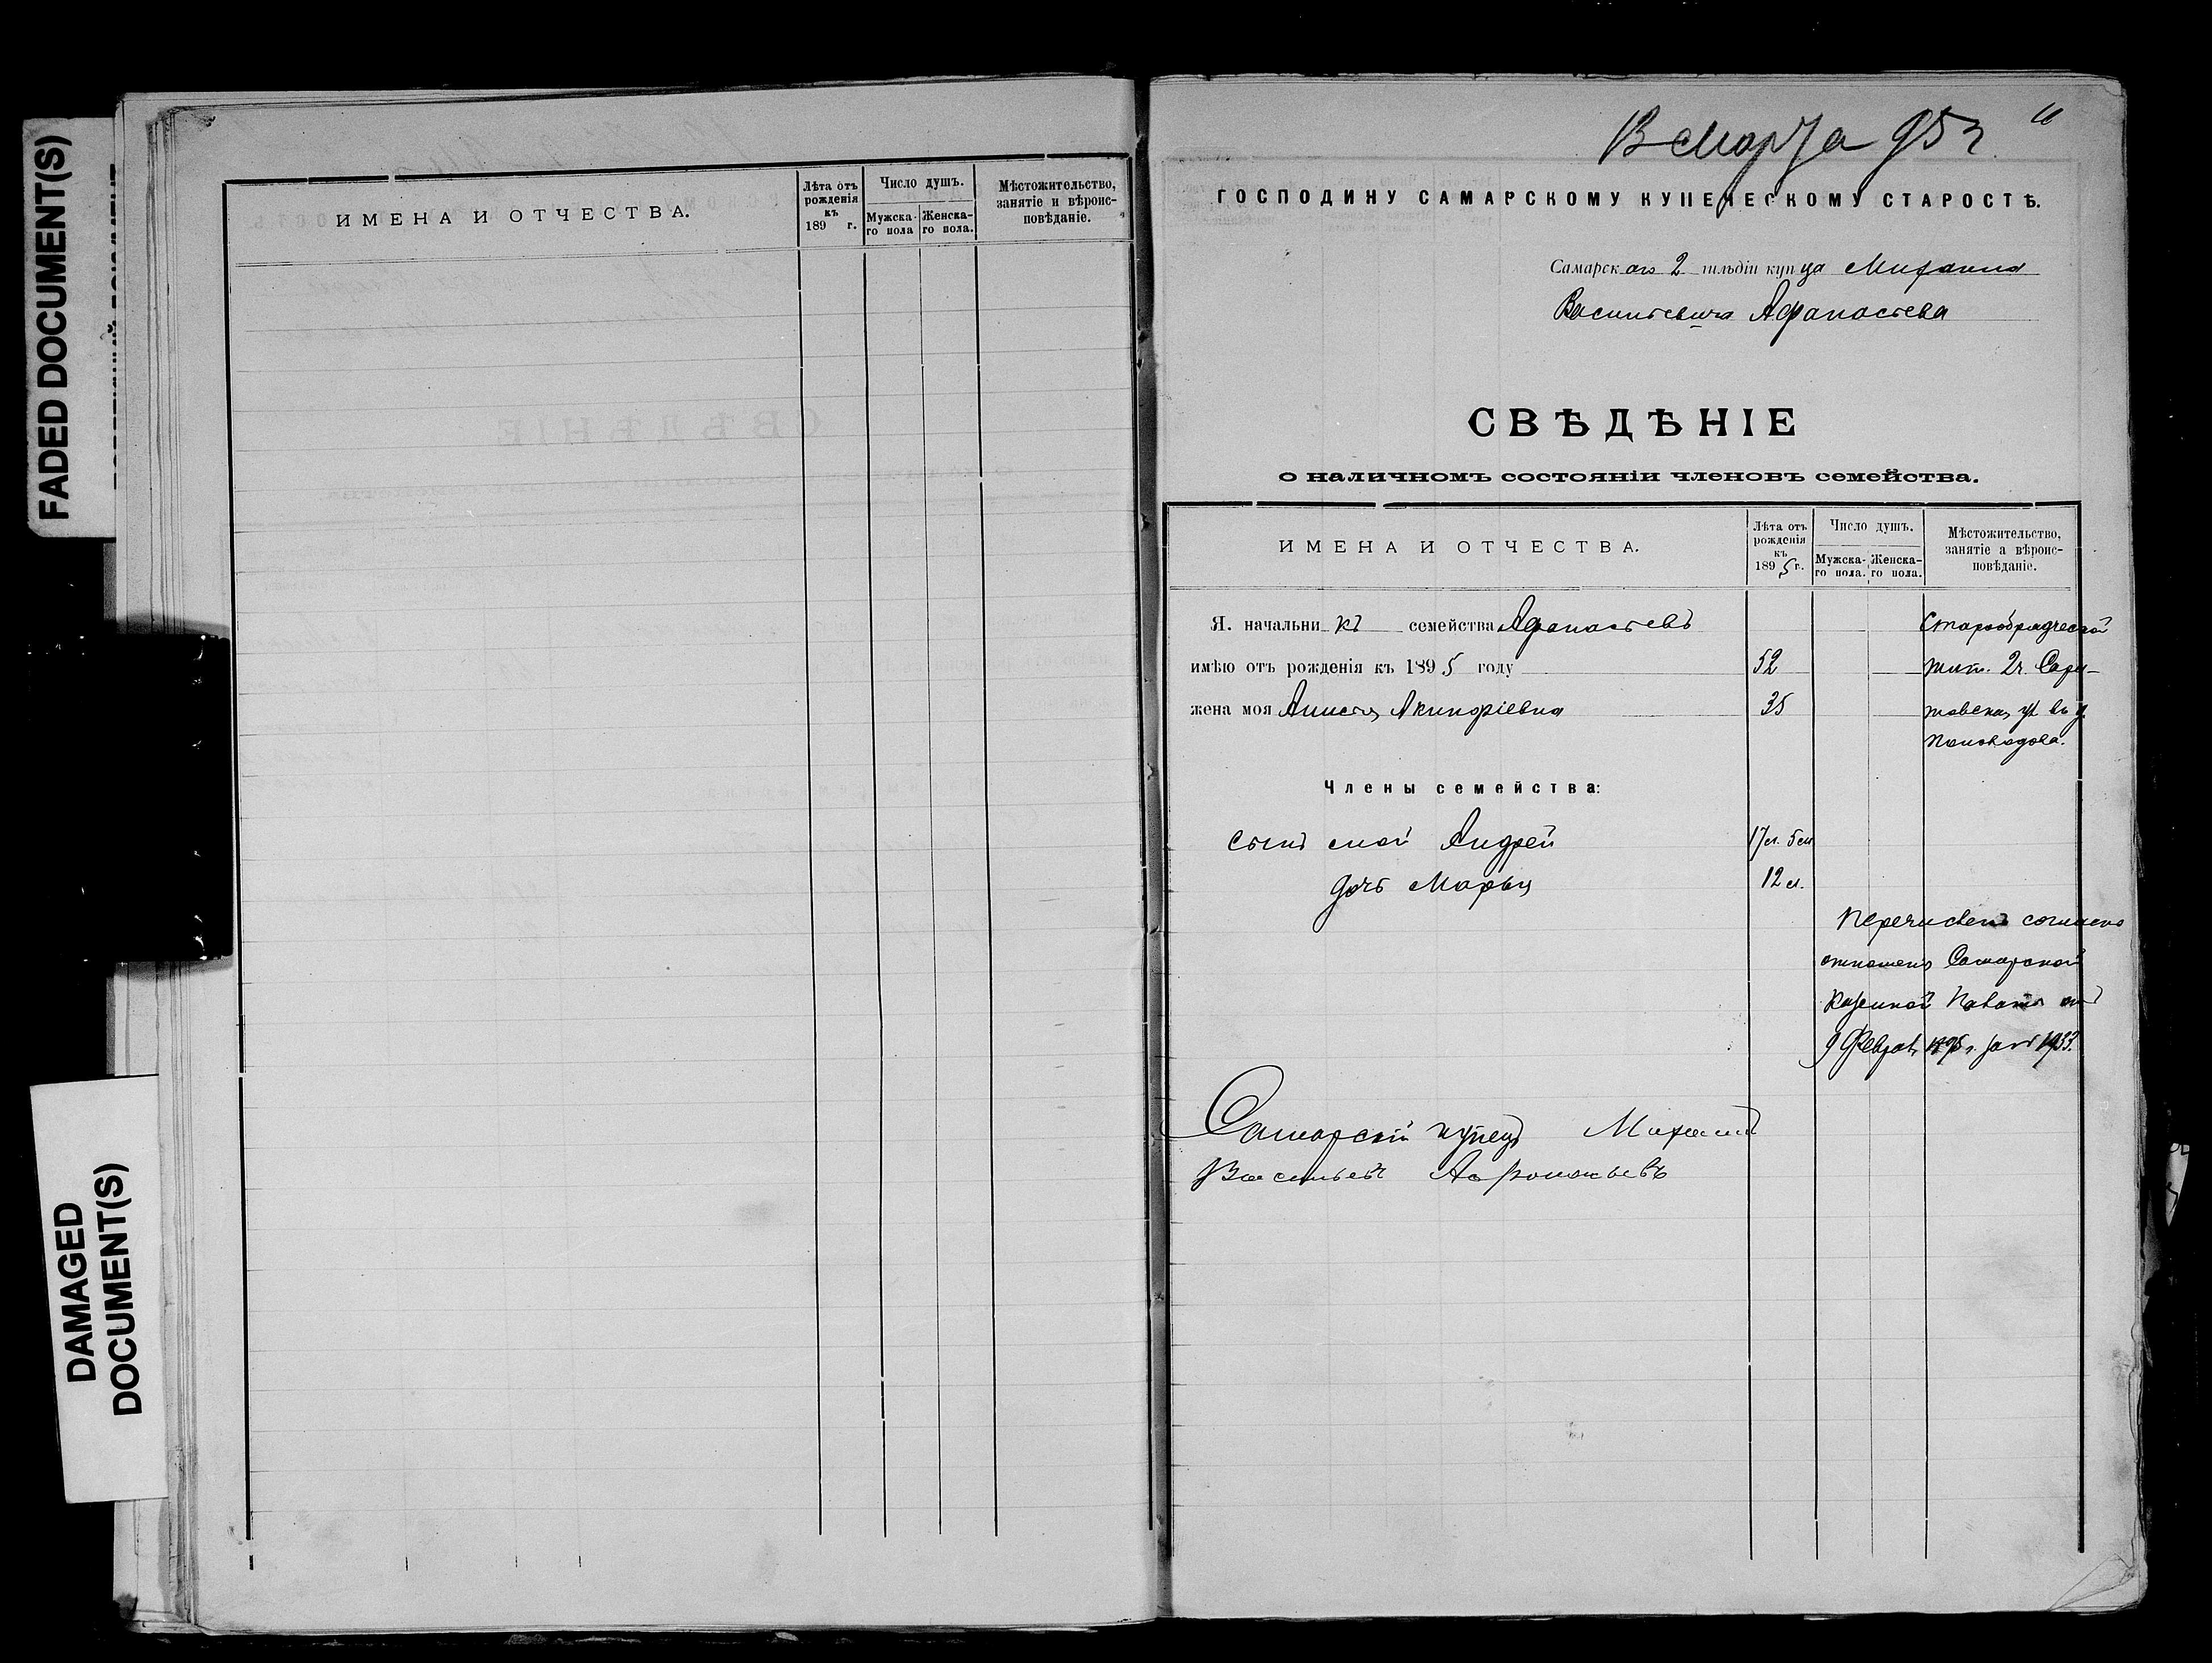 FADED DOCUMENT(S)
DAMAGED
DOCUMENT(S)
ИМЕНА И ОТЧЕСТВА.
Лѣта отъ рожденія къ 189 г.
Число душъ.
Мужска-го пола
Женска-го пола.
Мѣстожительство, занятіе и вѣроис-повѣданіе.
Марта 95 г.
ГОСПОДИНУ САМАРСКОМУ КУПЕЧЕСКОМУ СТАРОСТѢ.
Самарскаго 2 гильдіи купца Михаила
Васильевича Афанасьева
СВѢДѢНІЕ
о наличномъ состояніи членовъ семейства.
ИМЕНА И ОТЧЕСТВА.
Лѣта отъ рожденія къ 1895 г.
Число душъ.
Мужска-го пола.
Женска-го пола.
Мѣстожительство, занятіе а вѣроис-повѣданіе.
Я. начальникъ семейства Афанасьевъ
Старообрядческой
имѣю отъ рожденія къ 1895 году 52
жит. 2 ч. Сара-
жена моя Анисья 35
товская ул. въ д.
Члены семейства:
сынъ мой Андрей 17 л. 5 м
дочь Марья 12 л.
Перечисленъ согласно
отношенія Самарской
Казенной Палаты отъ
9 Феврал. 1895 г. за № 1933.
Самарскій купецъ Михаилъ
Васильевъ Афонасьевъ